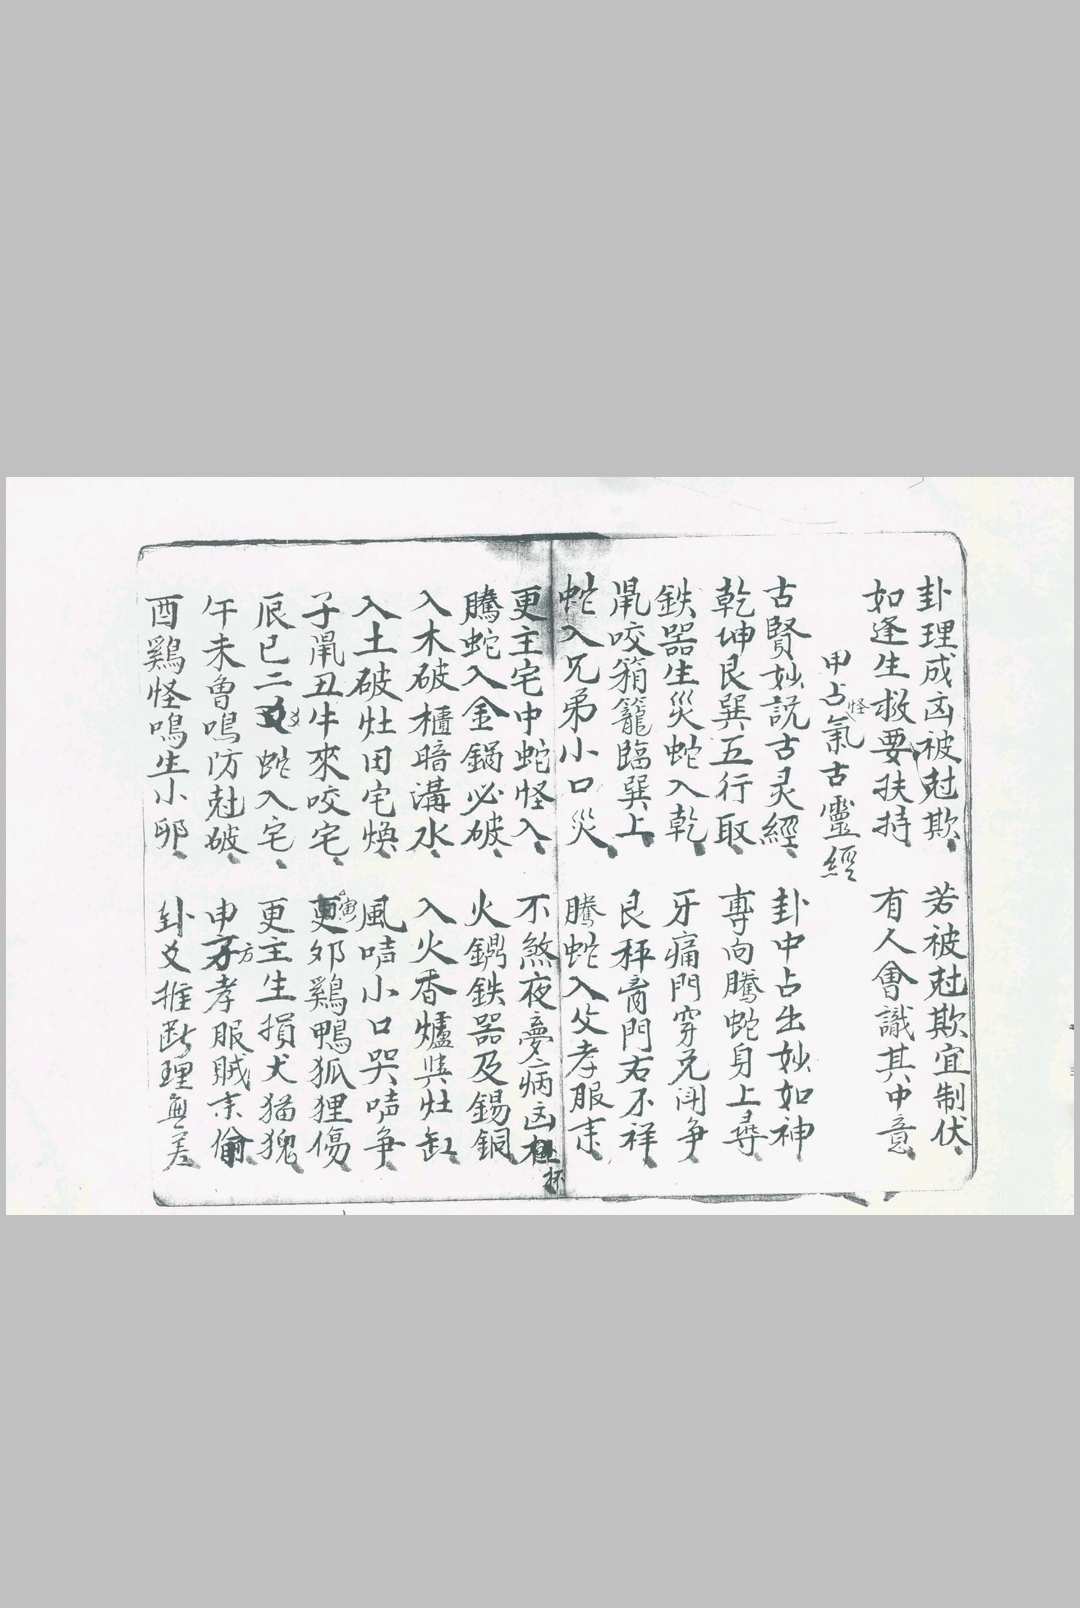 卦理成凶被尅欺、若被尅欺宜制伏、
如逢生救要扶持 有人會識其中意、
甲占怪氣古靈經
古賢妙説古灵經、卦中占出妙如神、
乾坤艮巽五行取、專向騰蛇身上尋、
鉄器生災蛇入乾、牙痛門穿兄鬧争、
鼠咬箱籠臨巽上、艮秤 門右不祥、
蛇入兄弟小口災、騰蛇入父孝服来、
更主宅中蛇怪入、不煞夜夢病凶 
騰蛇入金鍋必破、火 鉄器及錫銅、
入木破櫃暗溝水、入火香爐與灶缸、
入土破灶田宅煥、風声小口哭声争、
子鼠丑牛來咬宅、寅夘鷄鴨狐狸傷、
辰巳二爻蛇入宅、更主生損犬猫猊、
午未魯鳴防尅破、申方孝服賊来偷、
酉鷄怪鳴生小卵、卦爻推断理無差、